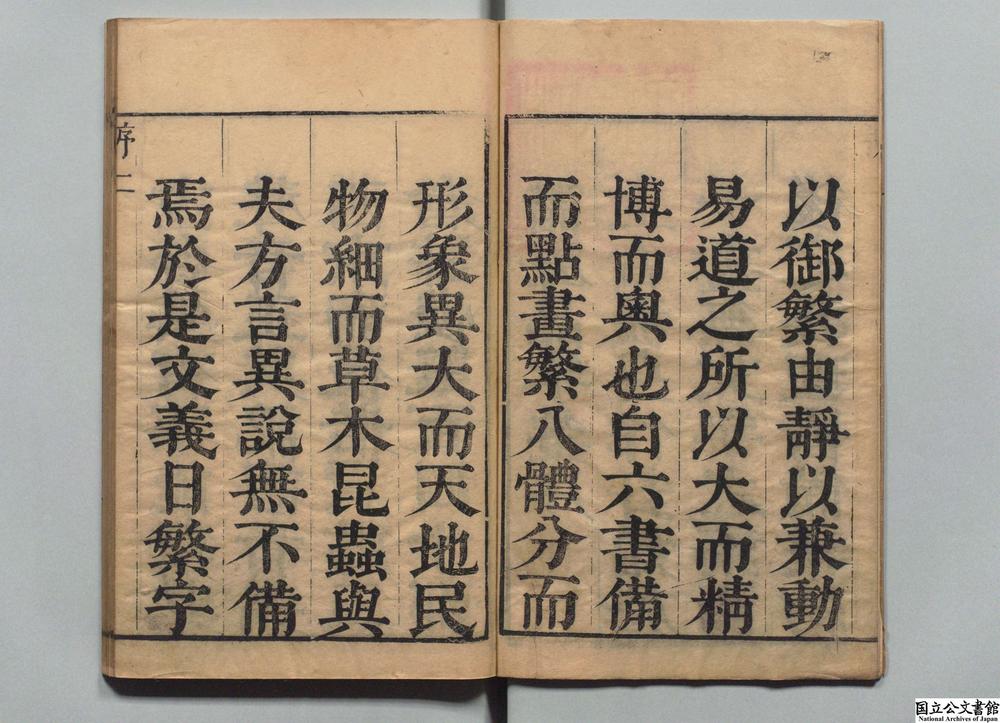 以御繁由靜以兼動
易道之所以大而精
博而奧也自六書備
而點畫繁八體分而
形象異大而天地民
物細而草木昆蟲與
夫方言異說無不備
焉於是文義日繁字
序二
国立公文書館
National Archives of Japan